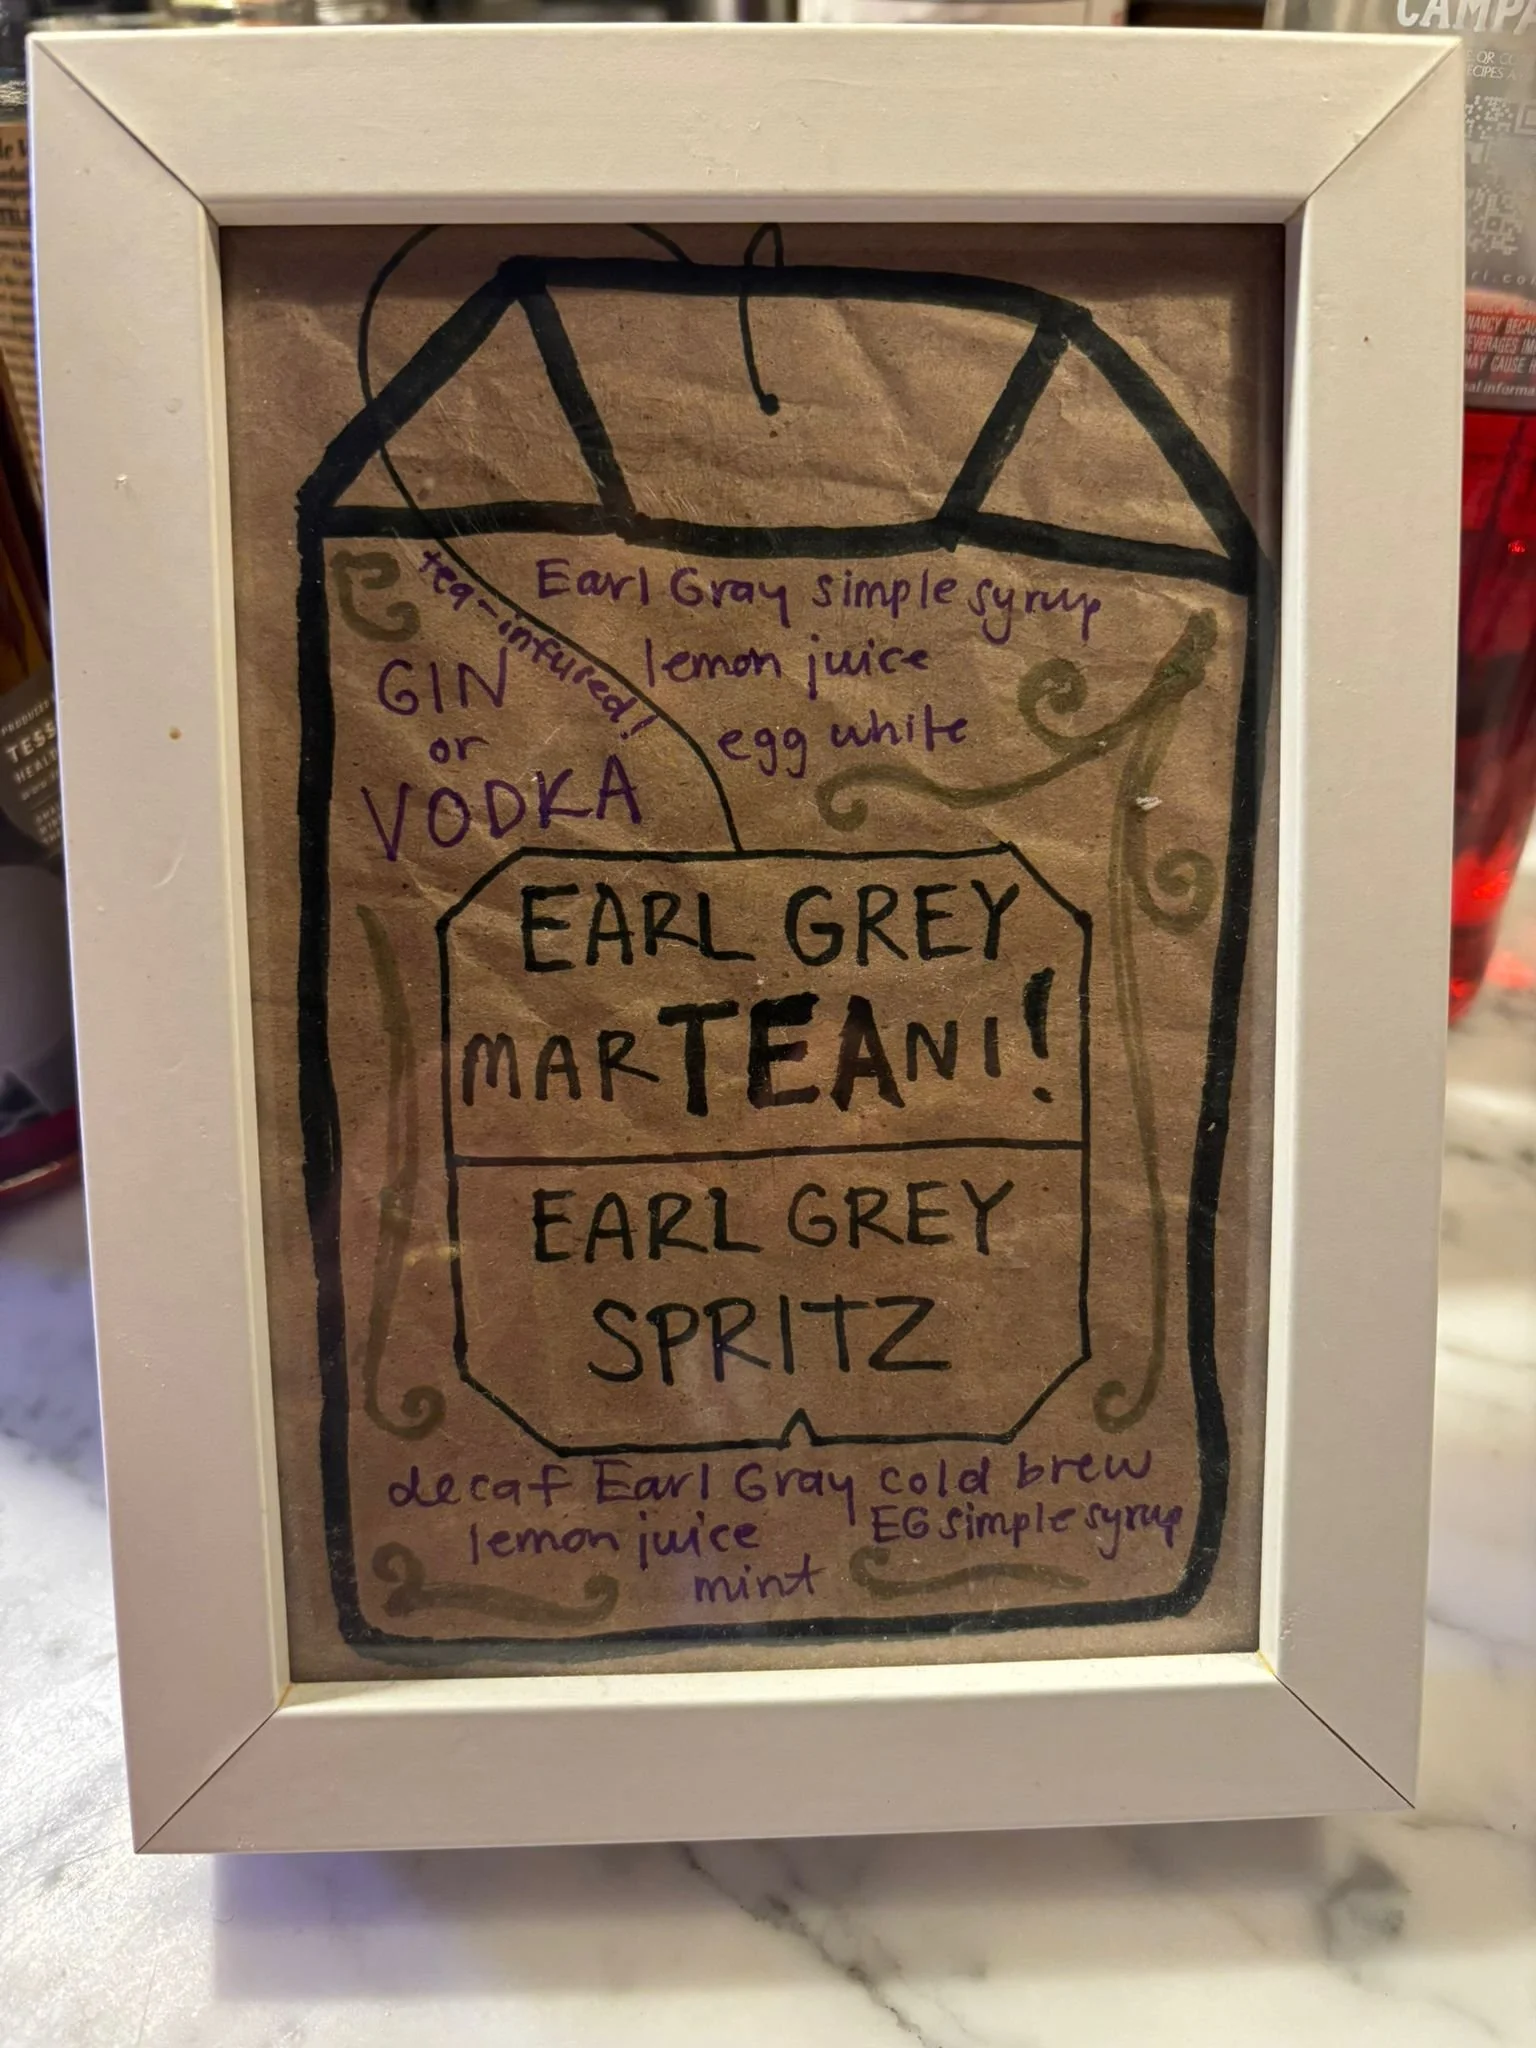 CAMPA
TESS
tea-infused!
GIN
or
VODKA
Earl Gray simple syrup
lemon juice
egg white
EARL GREY
MARTEANI!
EARL GREY
SPRITZ
decaf Earl Gray cold brew
lemon juice
EG simple syrup
mint